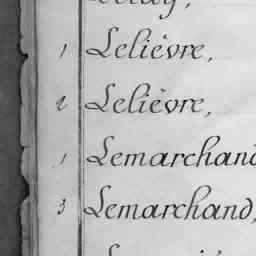 1 Lelièvre,
2 Lelièvre,
1 Lemarchand
3 Lemarchand,